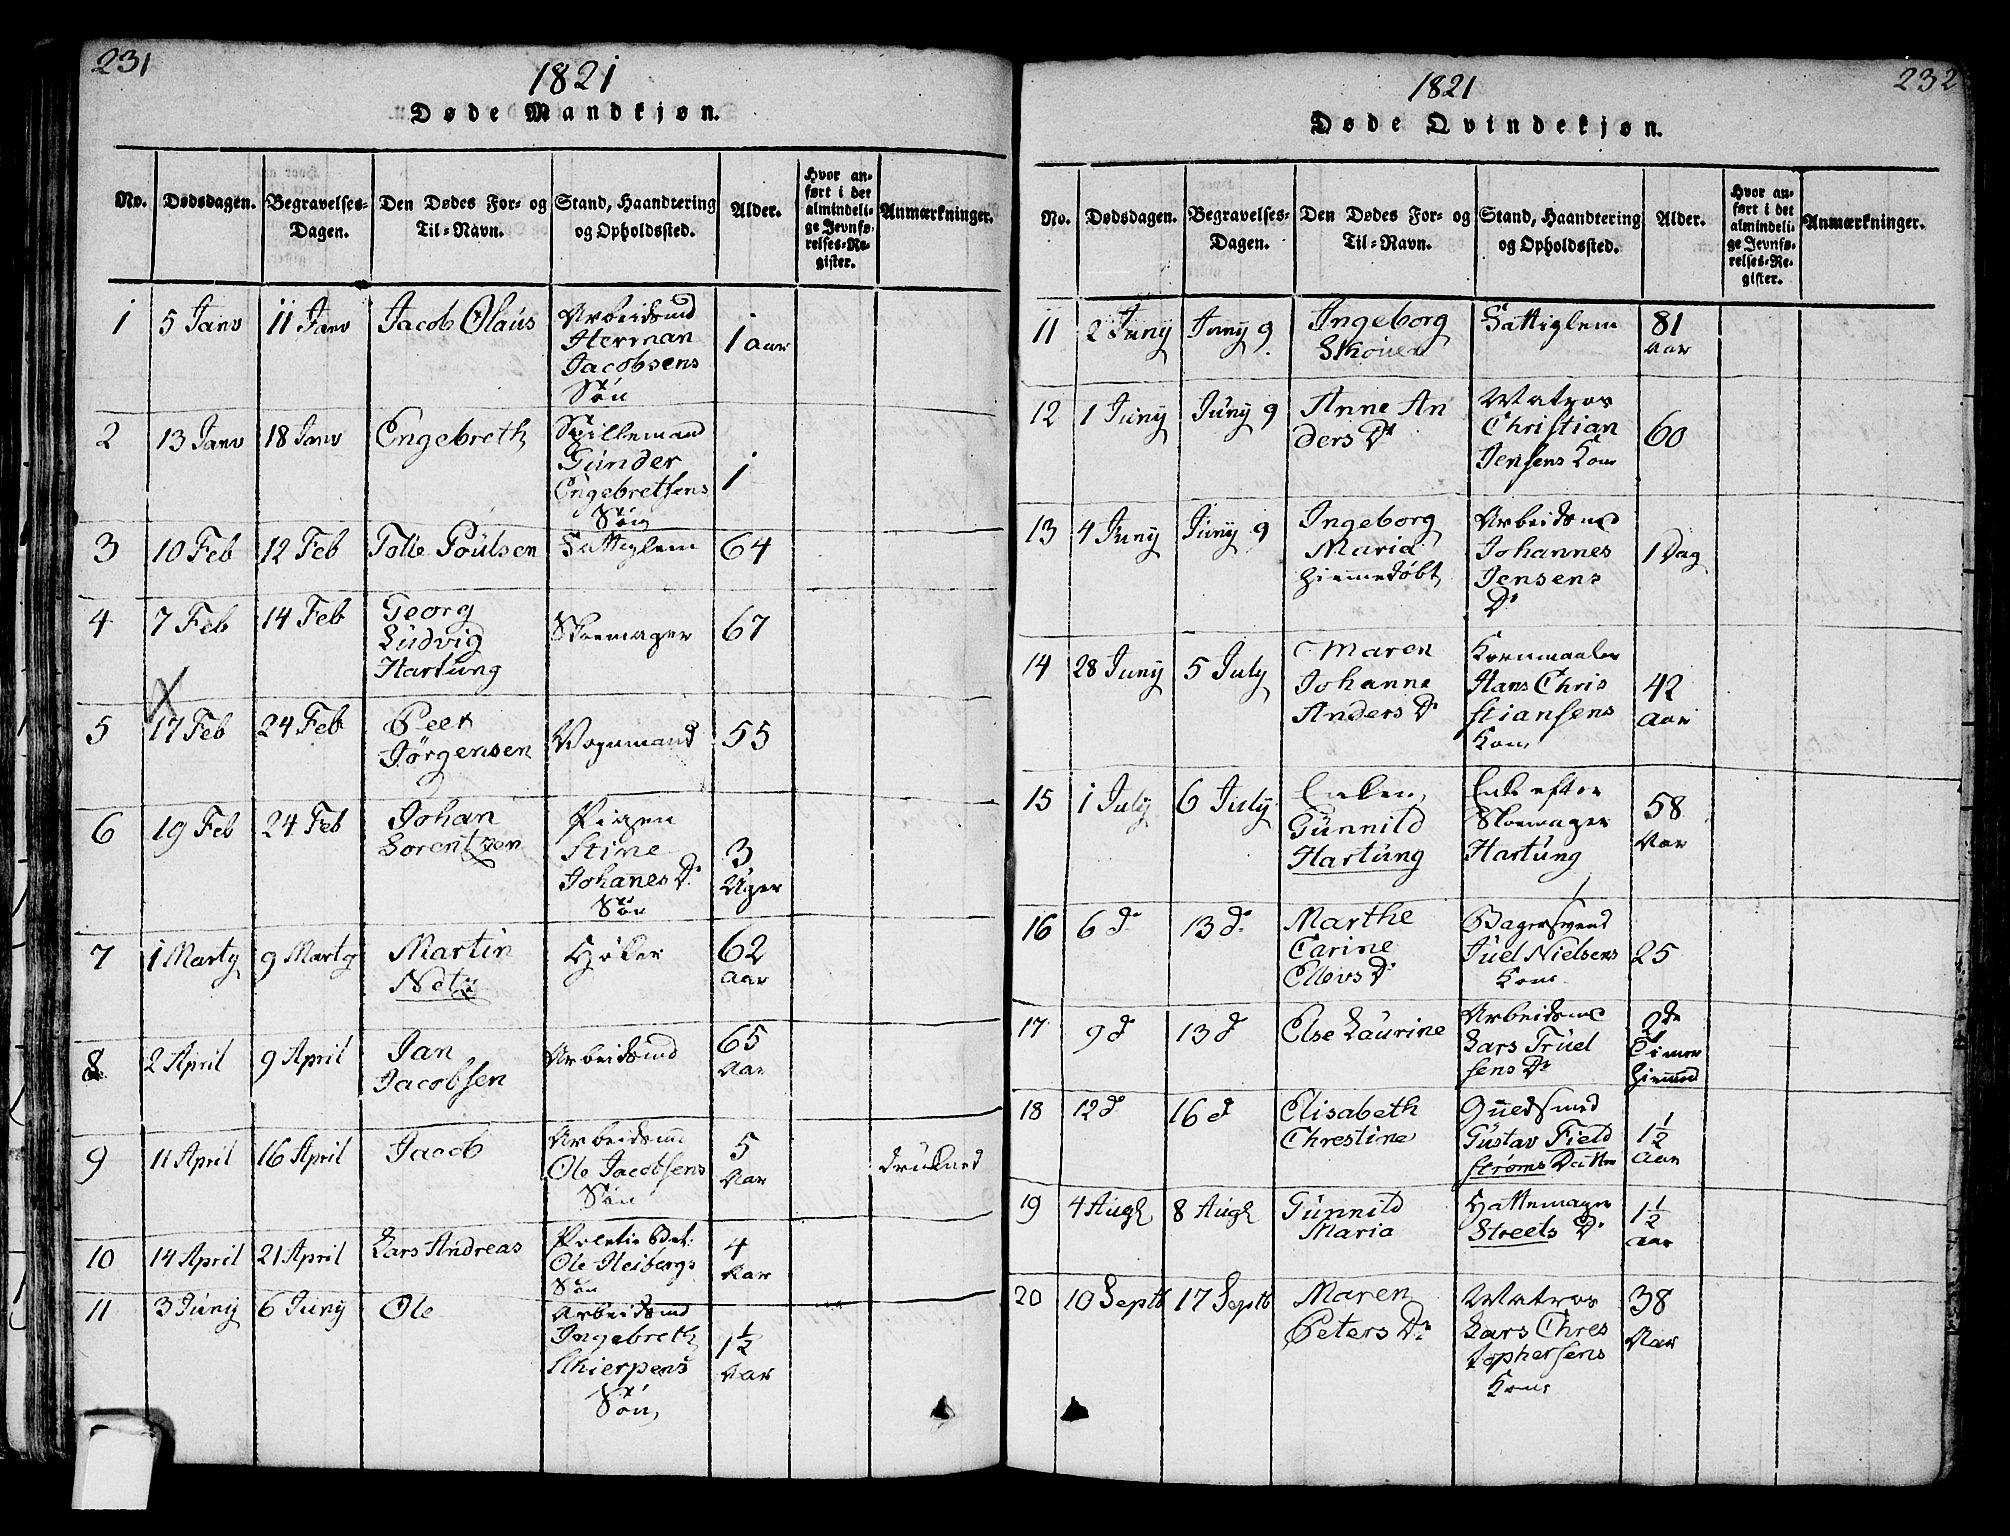 231
1821
Døde Mandkjøn.
No. Dødsdagen. Begravelses-Dagen. Den Dødes For- og Til-Navn. Stand, Haandtering og Opholdssted. Alder. Hvor anført i det almindelige Jevnførelses-Register. Anmærkninger.
1 5 Janv 11 Janv Jacob Olaus Arbeidsmd
Herman
Jacobsens
Søn
1 Aar
2 13 Janv 18 Janv Engebreth Spillemand
Gunder
Engebretsens
Søn
1
3 10 Feb 12 Feb Tolle Poulsen Fattiglem 64
4 7 Feb 14 Feb Georg
Ludvig
Hartung
Skoemager 67
5 17 Feb 24 Feb Peer
Jørgensen
Vognmand 55
6 19 Feb 24 Feb Johan
Sorentzen
Pigen
Stine
Johanes Dr
Søn
3
Uger
7 1 Marty 9 Marty Martin
Netz
Høker 62
Aar
8 2 April 9 April Jan
Jacobsen
Arbeidsmd 65
Aar
9 11 April 16 April Jacob Arbeidsm
Ole Jacobsens
Søn
5
Aar
drukned
10 14 April 21 April Lars Andreas Politie Bet:
Ole Heibergs
Søn
4
Aar
11 3 Juny 6 Juny Ole Arbeidsmd
Ingebreth
Skierpens
Søn
1½
Aar
232
1821
Døde Qvindekjøn.
No. Dødsdagen. Begravelses-Dagen. Den Dødes For- og Til-Navn. Stand, Haandtering og Opholdssted. Alder. Hvor anført i det almindelige Jevnførelses-Register. Anmærkninger.
11 2 Juny Juny 9 Ingeborg
Skouen
Fattiglem 81
Aar
12 1 Juny Juny 9 Anne An
ders Dr
Matros
Christian
Jensens Kone
60
13 4 Juny Juny 9 Ingeborg
Maria
hiemmedøbt
Arbeidsmd
Johannes
Jensens
Dr
1 Dag
14 28 Juny 5 July Maren
Johanne
Anders Dr
Kornmaaler
Hans Chris
stiansens
Kone
42
Aar
15 1 July 6 July Enken
Gunnild
Hartung
Enke efter
Skomager
Hartung
58
Aar
16 6 d 13 d Marthe
Carine
Ellevs Dr
Bagersvend
Juel Nielsens
Kone
25
17 9 d 13 d Else Laurine Arbeidsmd
Lars Truel
sens Dr
Timer
18 12 d 16 d Elisabeth
Chrestine
Guedsmed
Gustav Field
strøms Datter
1½
Aar
19 4 Augt 8 Augt Gunnild
Maria
Hattemager
Streets Dr
1½
Aar
20 10 Septb 17 Septb Maren
Peters Dr
Matros
Lars Chres
tophersens
Kone
38
Aar